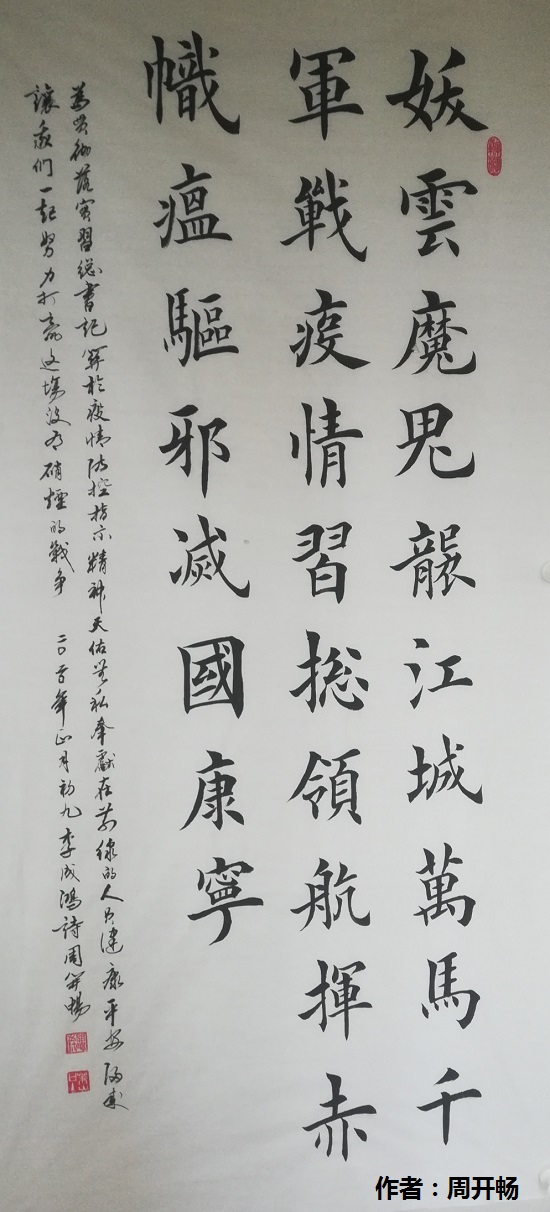 妖雲魔鬼襲江城萬馬千
軍戰疫情習総領航揮赤
幟瘟驅邪滅國康寧
為贯彻落实習総書記関於疫情防控指示精神天佑無私奉獻在前線的人员健康平安归来
讓我们一起努力打赢这場没有硝煙的戰争 二〇二〇年正月初九李成鴻詩周開暢
作者：周开畅